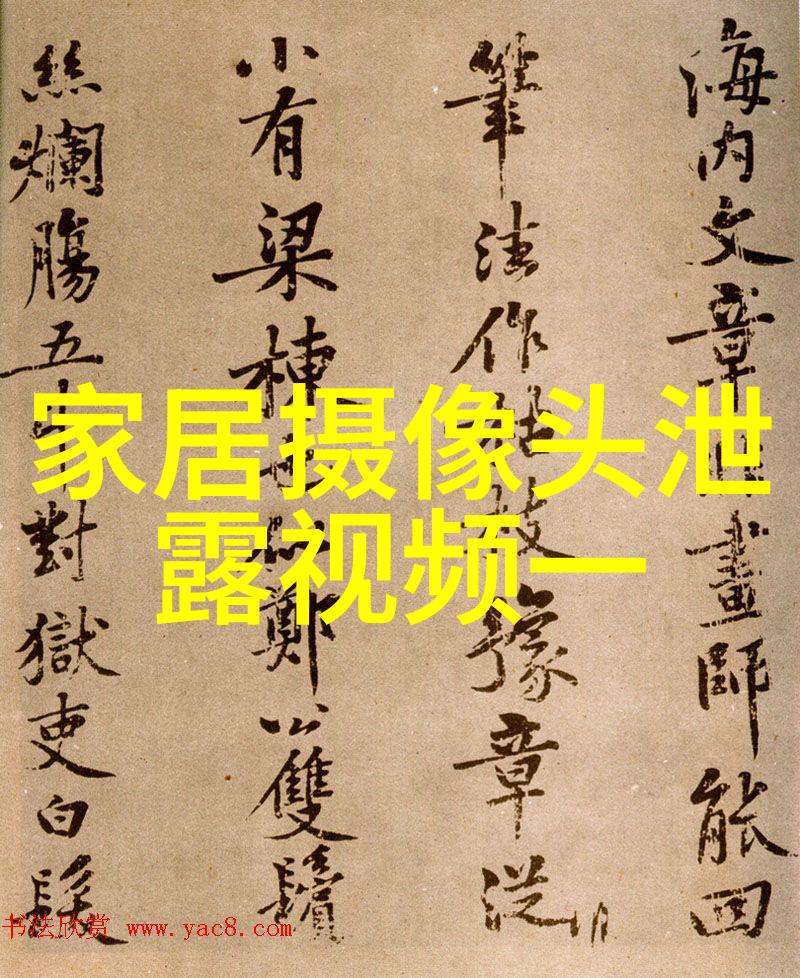 海内文章畫師能回
筆法作枝豫章從
小有梁棟鄭公雙鬢
絲爛腸五對獄吏白髮
家居摄像头泄
露视频一
书法欣赏 www.yac8.com